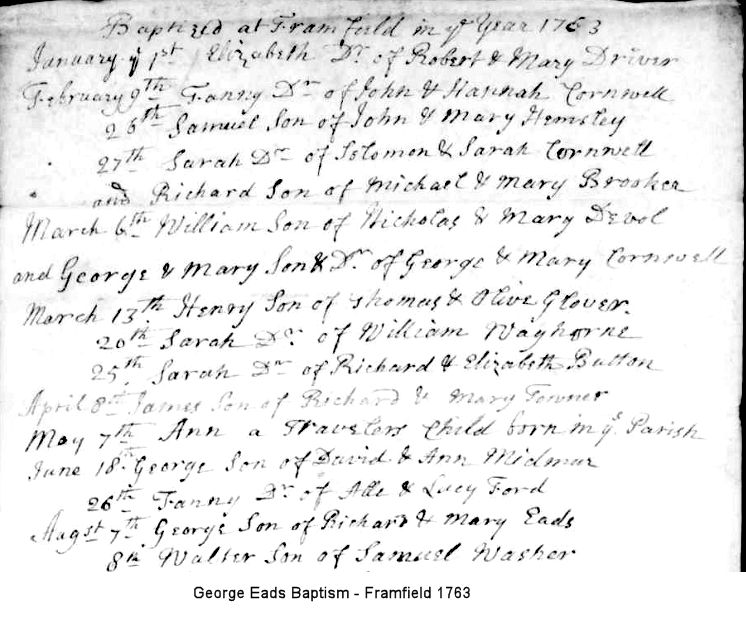 Baptized at Framfield in ye Year 1763
January ye 1st Elizabeth Dr of Robert & Mary Driver
February 9th Fanny Dr of John & Hannah Cornwell
26th Samuel Son of John & Mary Hemsley
27th Sarah Dr of Solomon & Sarah Cornwell
and Richard Son of Michael & Mary Brooker
March 6th William Son of Nicholas & Mary Devol
and George & Mary Son & Dr of George & Mary Cornwell
March 13th Henry Son of Thomas & Olive Glover.
20th Sarah Dr of William Waghorne
25th Sarah Dr of Richard & Elizabeth Button
April 8th James Son of Richard & Mary Towner
May 7th Ann a Travelers Child born in ys Parish
June 18th George Son of David & Ann Midmur
26th Fanny Dr of & Lucy Ford
Augst 7th George Son of Richard & Mary Eads
8th Walter Son of Samuel Washer
George Eads Baptism - Framfield 1763